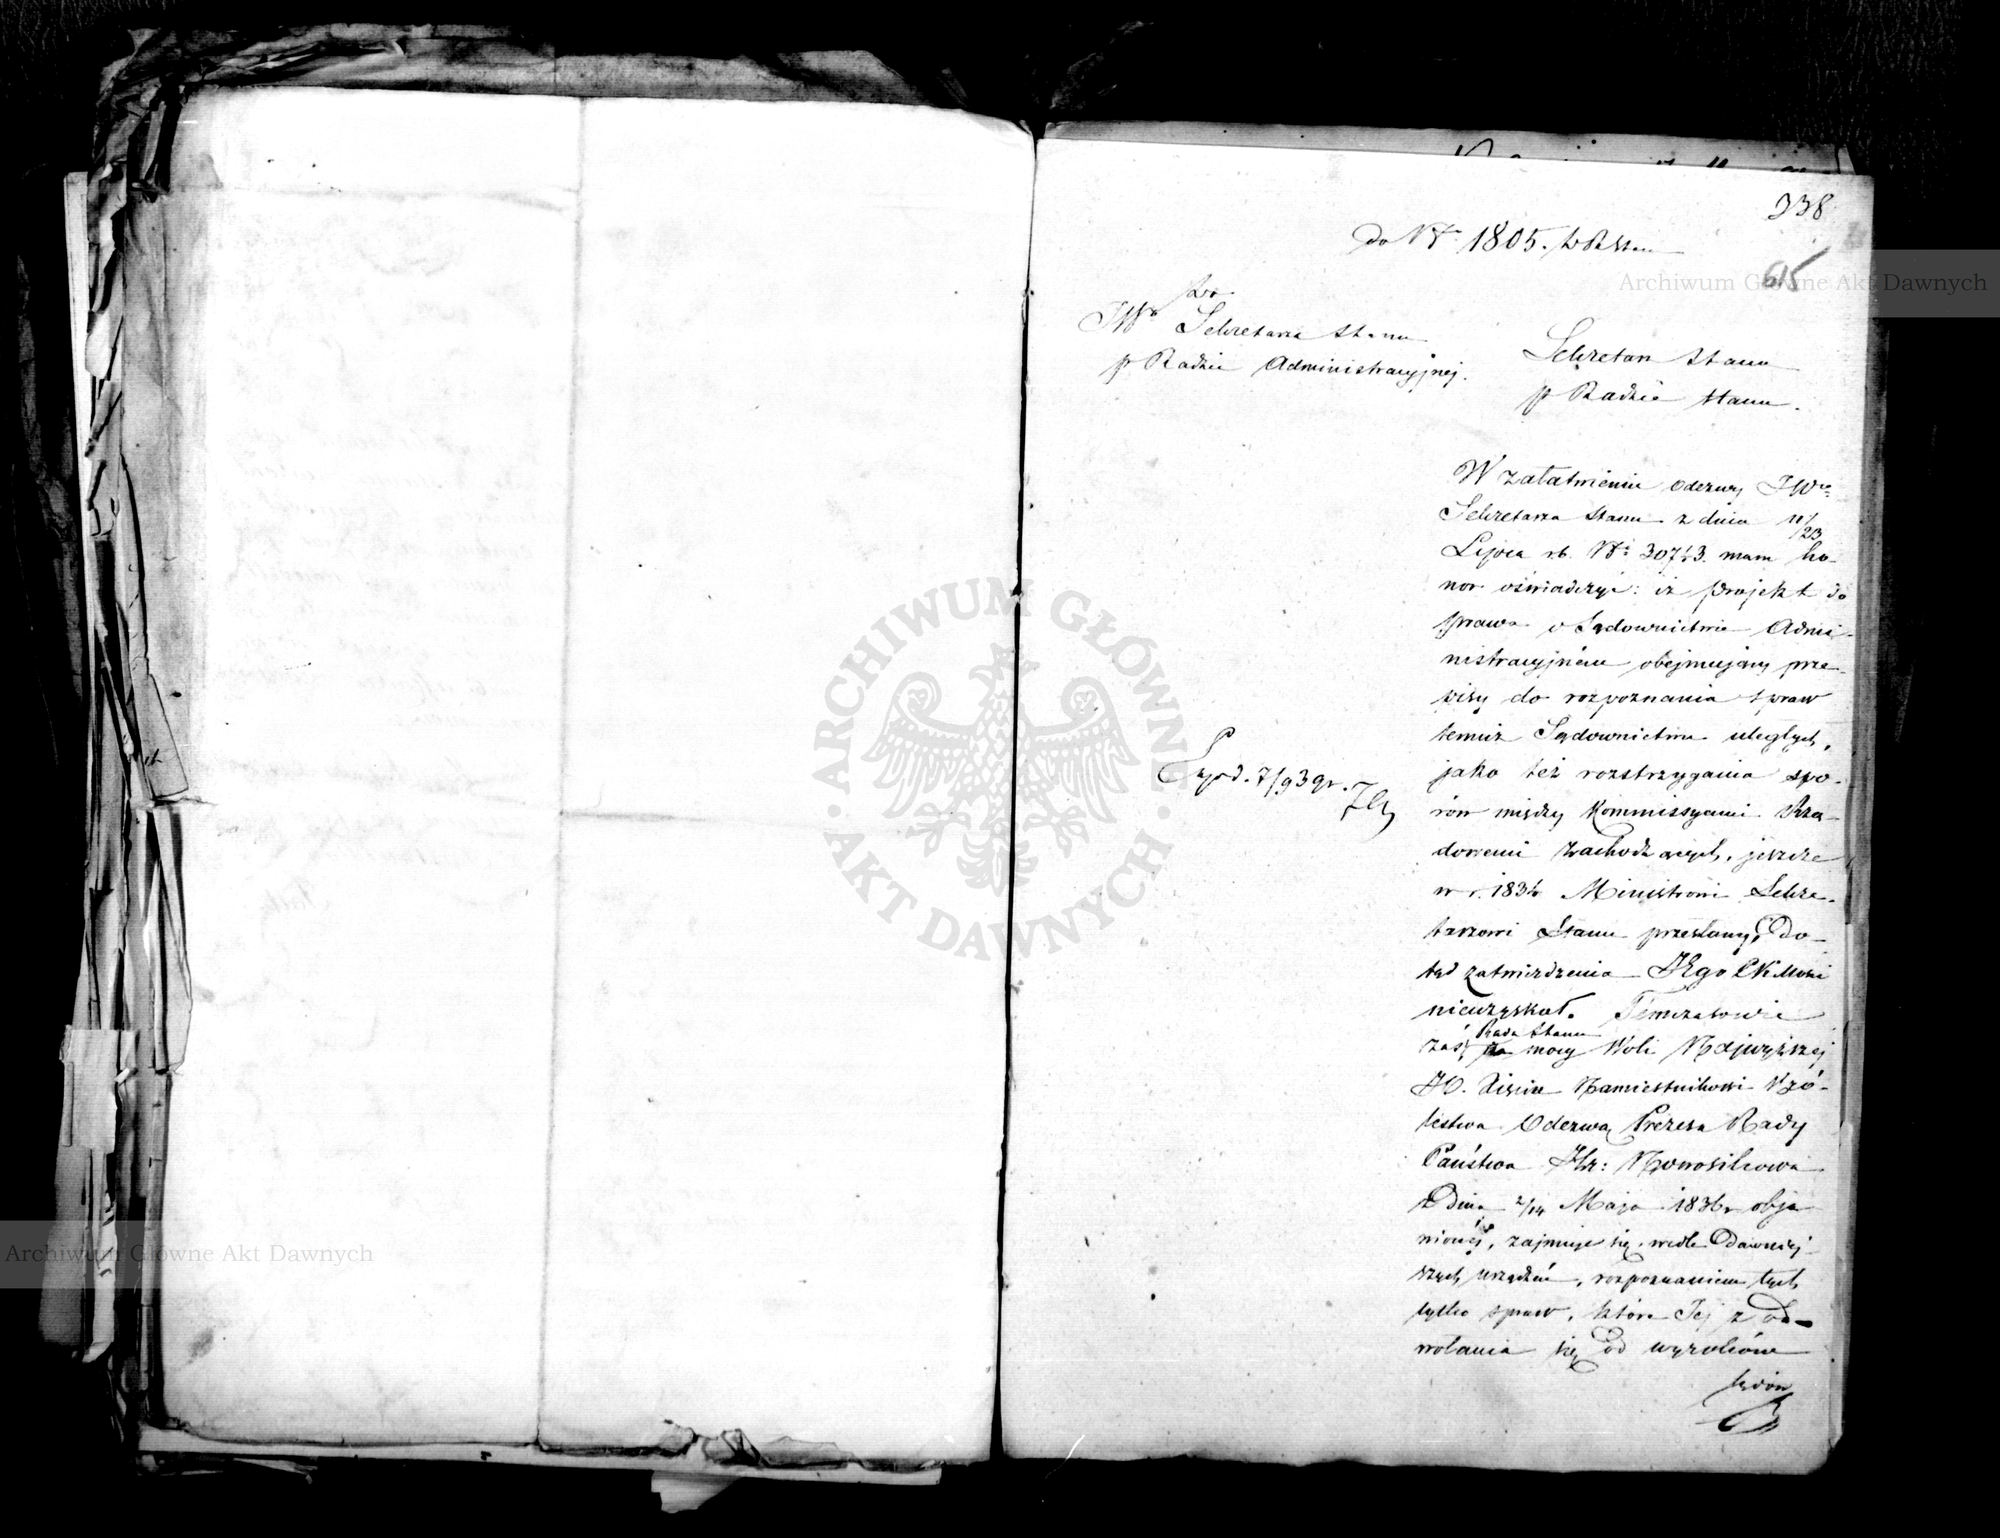 338
do Nr 1805.
615
Do
JWo Sekretarza Stanu
p Radzie Administracyjnej.
Sekretarz Stanu
p Radzie Stanu.
W załatwieniu odezwy JWo
Sekretarza Stanu z dnia 11/23
Lipca rb. Nr 30743. mam ho-
nor oświadczyć: iż projekt do
prawa o Sądownictwie Admi-
nistracyjném obejmujący prze-
pisy do rozpoznania spraw
temuż Sądownictwu uległych,
jako też rozstrzygania spo-
rów między Kommissyami Rzą-
dowemi zachodzących, jeszcze
w r. 1834 Ministrowi Sekre-
tarzowi Stanu przesłany, do-
tąd zatwierdzenia JEgo CK Mości
nieuzyskał. Témczasowie
zaś, Rada Stanu na mocy Woli Najwyższej
JO. Xięciu Namiestnikowi Kró-
lestwa Odezwą Prezesa Rady
Państwa Hr: Nowosilcowa
z Dnia 2/14 Maja 1836 r obja-
wionéj, zajmuje się, wedle Dawniéj-
szych urządzeń, rozpoznaniem tych
tylko spraw, które Jej z od-
wołania się od wyroków
Sądów
Exped. 7/9 39 r.
Archiwum Główne Akt Dawnych
ARCHIWUM GŁÓWNE · AKT DAWNYCH ·
Archiwum Główne Akt Dawnych